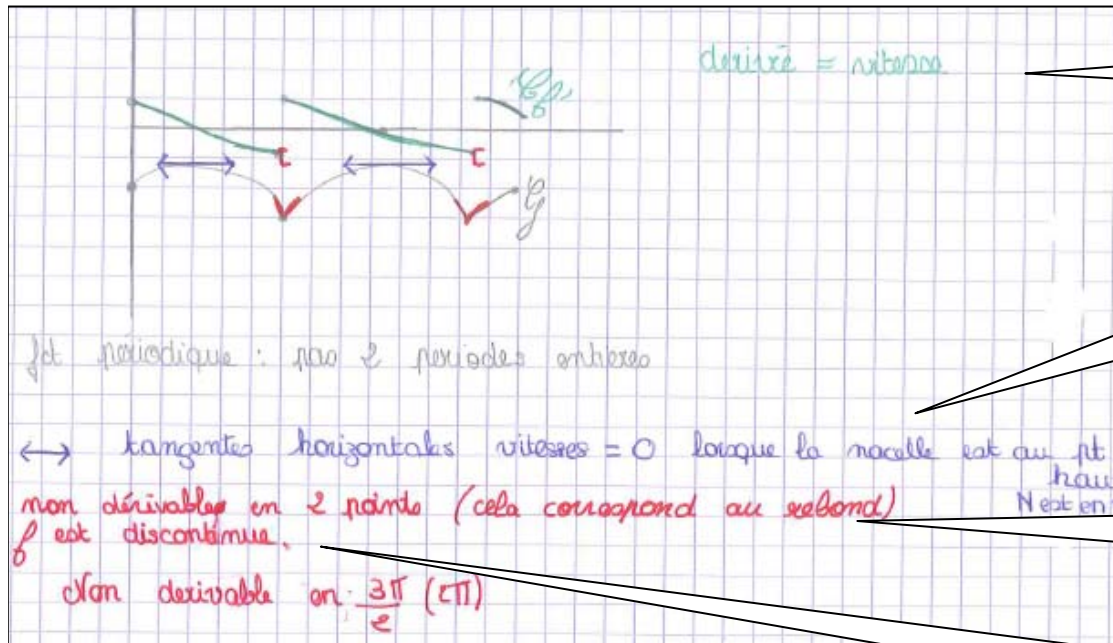 derivé = vitesse
Cf'
Cf
fct périodique : pas 2 periodes entières
↔ tangentes horizontales vitesses = 0 lorsque la nacelle est au pt
hau
non dérivables en 2 points (cela correspond au rebond) N est en
f est discontinue.
Non derivable en 3π/2 (2π)